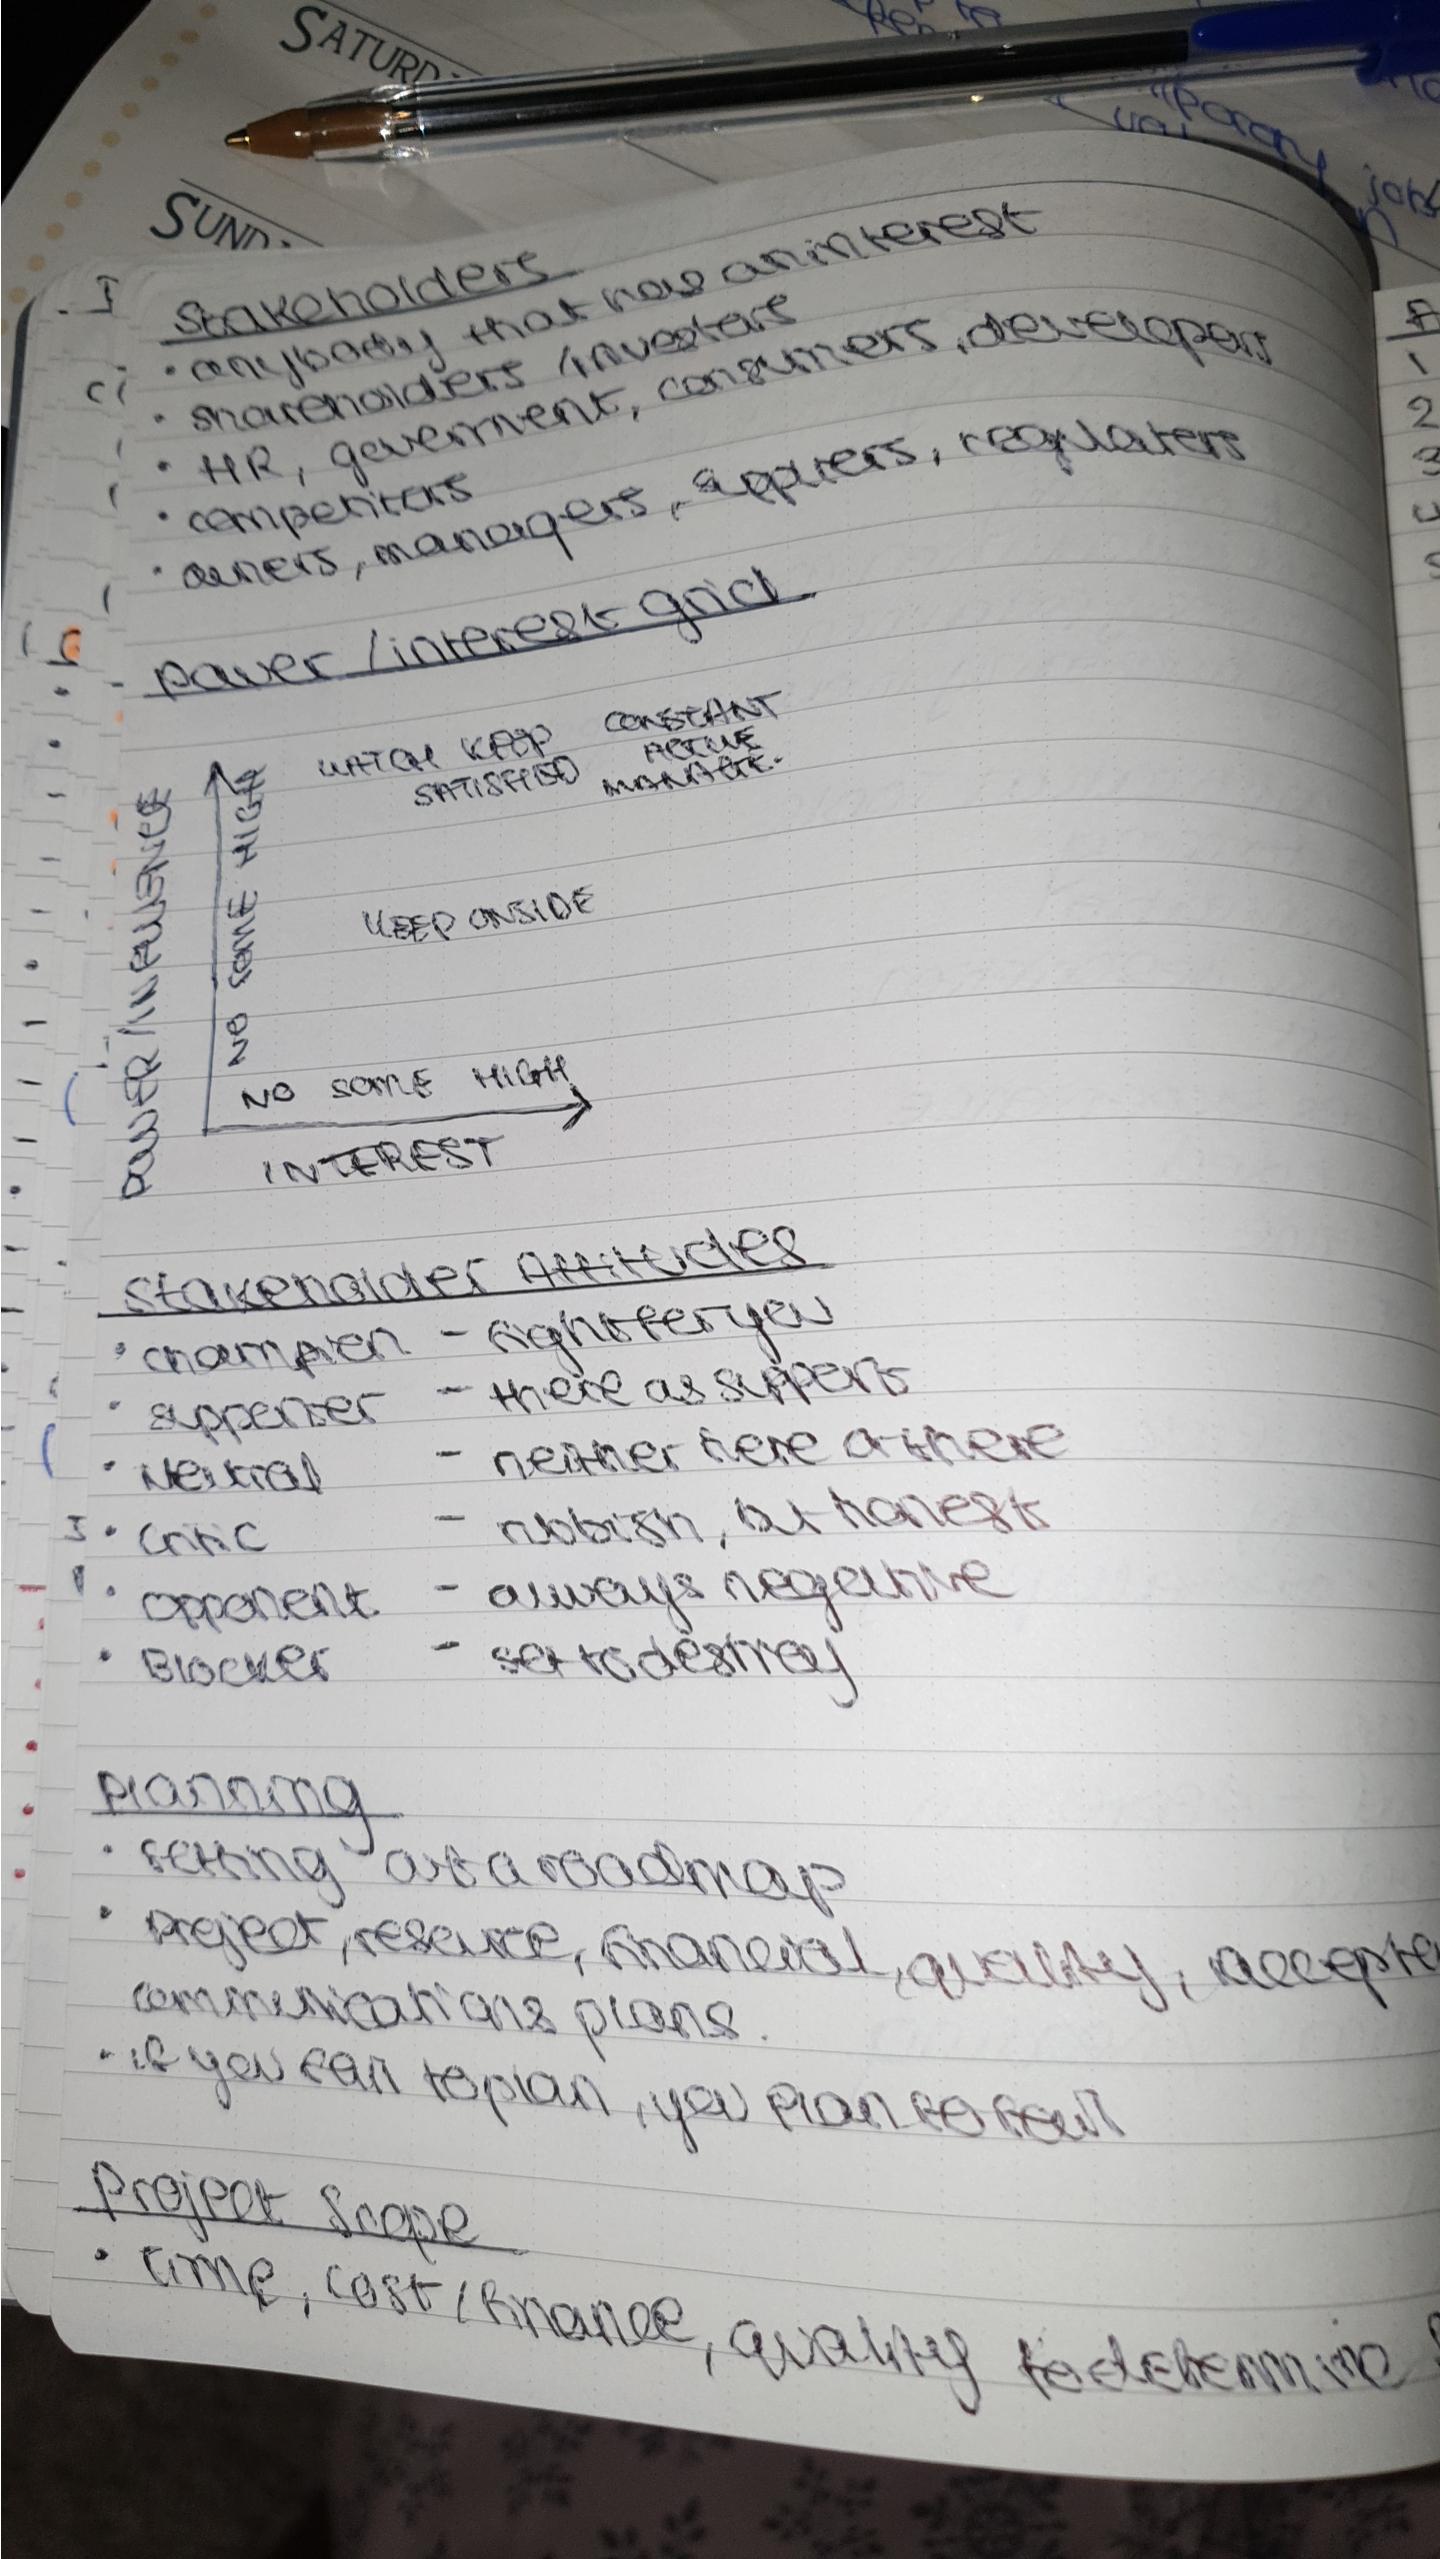 SATURD
SUND
Stakeholders
• anybody that has an interest
• shareholders / investors
• HR, government, consumers, developers
• competitors
• owners, managers, suppliers, regulaters
Power / interest grid
WATCH KEEP CONSTANT
SATISFIED ACTIVE
MANAGE.
KEEP ONSIDE
POWER / INFLUENCE
NO SOME HIGH
NO SOME HIGH
INTEREST
Stakeholder Attitudes
• champion - fights for you
• supporter - there as support
• Neutral - neither here or there
• Critic - rubbish, but honest
• opponent - always negative
• Blocker - set to destroy
Planning
• setting out a roadmap
• Project, resource, financial, quality,
communications plans.
• if you fail to plan, you plan to fail
Project Scope
• time, cost / finance, quality to determine
1
2
3